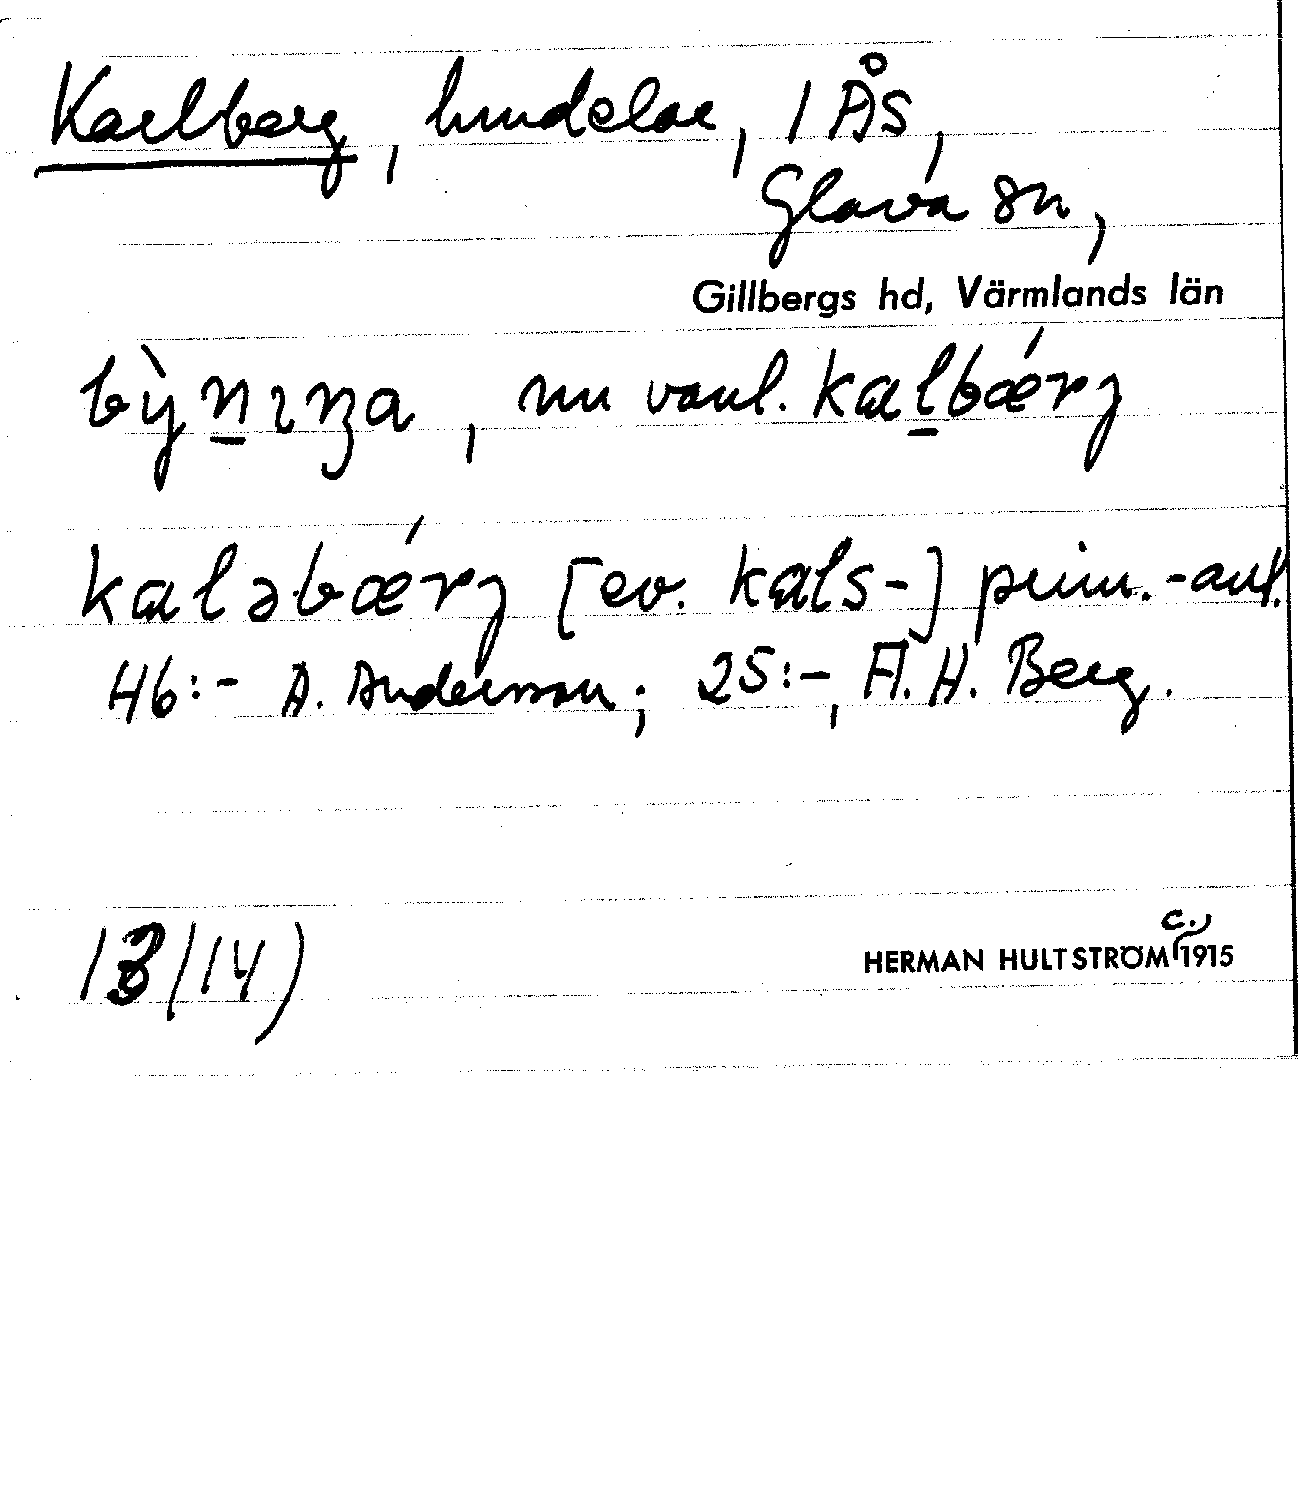 Karlberg, hmdelar, 1 ÅS,
Glava sn,
Gillbergs hd, Värmlands län
bỳn̲ɪŋa, nu vanl. kal̲bǽrj
kaləbǽrj [ev. kals-] prim.-anl.
46:- A. Andersson; 25:-, A. H. Berg.
13/14)
HERMAN HULTSTRÖM c. 1915